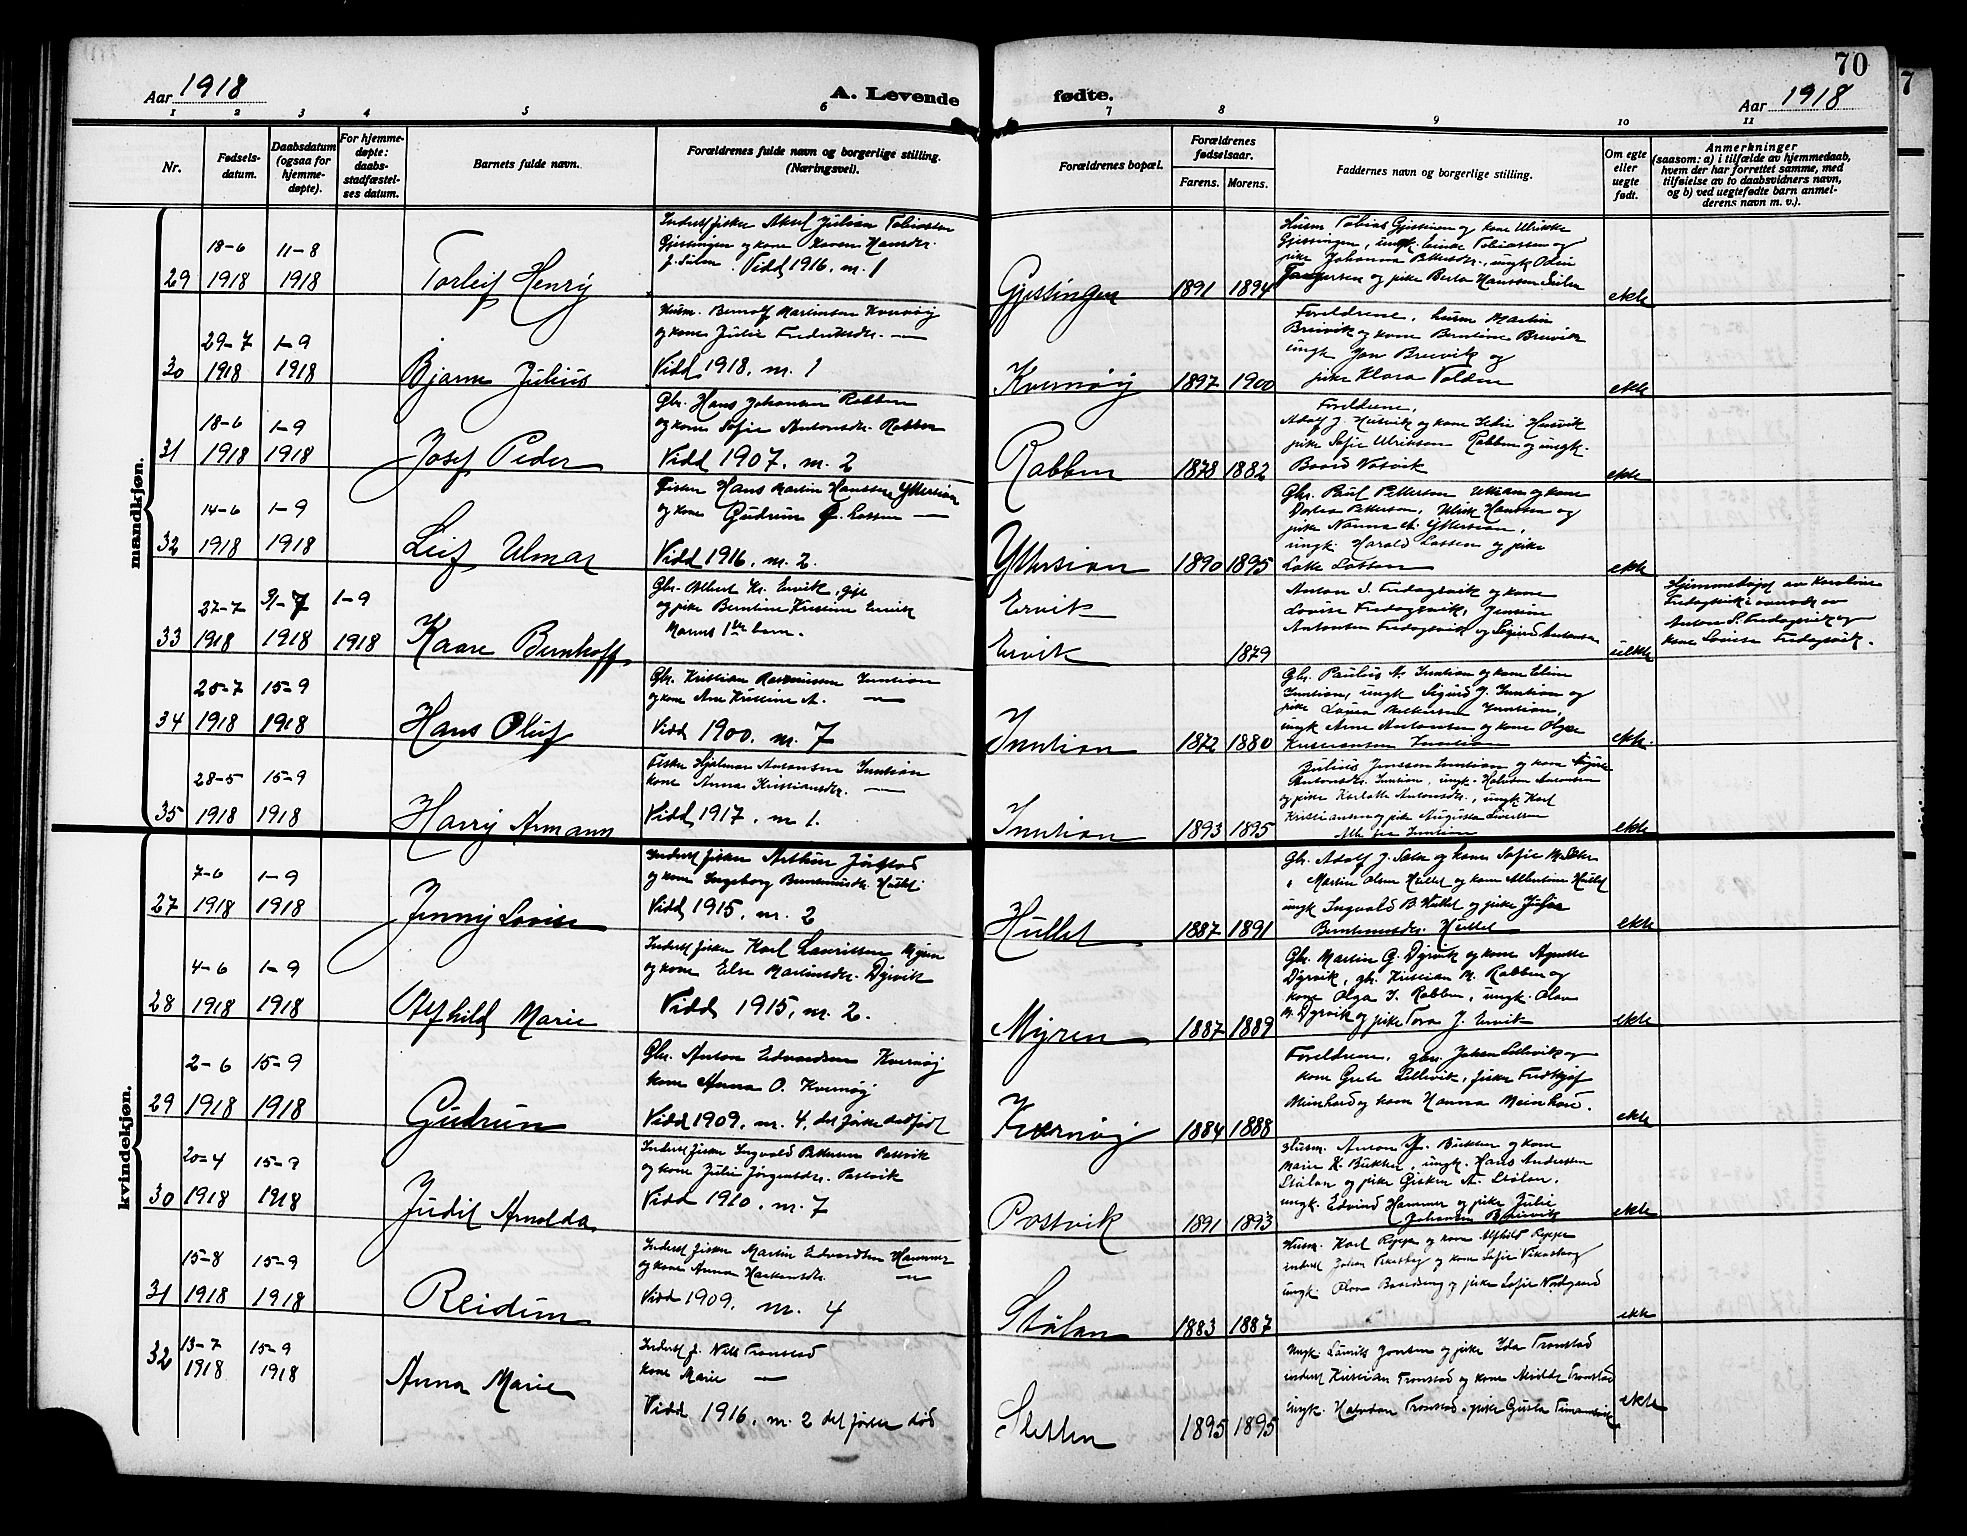 70
Aar 1918
A. Levende fødte.
Aar 1918
1 2 3 4 5 6 7 8 9 10 11
Nr.
Fødsels-
datum.
Daabsdatum
(ogsaa for
hjemme-
døpte).
For hjemme-
døpte:
daabs-
stadfæstel-
ses datum.
Barnets fulde navn.
Forældrenes fulde navn og borgerlige stilling.
(Næringsvei).
Forældrenes bopæl.
Forældrenes
fødselsaar.
Farens. Morens.
Faddernes navn og borgerlige stilling.
Om egte
eller
uegte
født.
Anmerkninger
(saasom: a) i tilfælde av hjemmedaab,
hvem der har forrettet samme, med
tilføielse av to daabsvidners navn,
og b) ved uegtefødte barn anmel-
derens navn m. v.).
mandkjøn.
29
18-6
1918
11-8
1918
Torleif Henry
Inderst fisker Aksel Julian Tobiassen
Gjessingen og kone Karen Hansdr.
Vidd 1916. m. 1
Gjessingen
1891 1894
Husm Tobias Gjessingen og kone Ulrikke
Gjessingen, ungk. Tobiassen og
pike Johanna Pettersdr., ungk Odin
og pike Berta Hanssen
ekte
30
29-7
1918
1-9
1918
Bjarne Julius
Husm. Bernolf Martinsen Kvernøy
og kone Julie Fredriksdr. —
Vidd 1918. m. 1
Kvernøy
1897 1900
Foreldrene, husm Martin
Breivik og kone Berntine Breivik
ungk Jon Breivik og
pike Klara Volden
ekte
31
18-6
1918
1-9
1918
Josef Peder
Gbr. Hans Johansen Rabben
og kone Sofie Antonsdr. Rabben
Vidd 1907. m. 2
Rabben
1878 1882
Foreldrene,
Adolf J. Husvik og kone Husvik
pike Sofie Ulriksen Rabben og ungk.
Baard
ekte
32
14-6
1918
1-9
1918
Leif Ulmar
Fisker Hans Martin Hanssen Yttersian
og kone Gudrun Lassen —
Vidd 1916. m. 2.
Yttersian
1890 1895
Gbr. Paul Pettersen og kone
Dortea Pettersen, Ulrik Hanssen og
pike Nanna Yttersian,
ungk. Harald Lassen og pike
Lassen
ekte
33
27-7
1918
31-7
1918
1-9
1918
Kaare Bernhoff
Gbr. Albert Kr. Ervik, gift
og pike Berntine Kristine Ervik
Morens 1ste barn.
Ervik
Ervik
1879
Anton S. Fredagsvik og kone
Lovise Fredagsvik, Jensine
Antonsen Fredagsvik og Sigurd Antonsen
uekte
Hjemmedøpt av Karoline
Fredagsvik i overvær av
Anton S. Fredagsvik og
kone Lovise Fredagsvik.
34
25-7
1918
15-9
1918
Hans Oluf
Gbr. Kristian Rasmussen Inntian
og kone Ane Kristine A. —
Vidd 1900. m. 7
Inntian
1872 1880
Gbr. Paulius A. Inntian og kone Eline
Inntian, ungk Sigurd J. Inntian og
pike Laura Inntian,
ungk Arne Antonsen og kone Olga
Kristiansen Inntian
ekte.
35
28-5
1918
15-9
1918
Harry Armann
Fisker Hjalmar Antonsen Inntian
kone Anna Kristiansdr. —
Vidd 1917. m 1.
Inntian
1893 1895
Julius Jenssen Inntian og kone
Antonsdr. Inntian, ungk. Halvdan Antonsen
og pike Karlotte Antonsdr., ungk Karl
Kristiansen og pike Augusta
Alle fra Inntian
ekte
kvindekjøn.
27
7-6
1918
1-9
1918
Jenny Lovise
Inderst fisker Arthur Jørstad
og kone Ingeborg Hullet
Vidd 1915. m. 2
Hullet
1887 1891
Gbr. Adolf J. og kone Sofie
Martin Olsen Hullet og kone Albertine Hullet
ungk Ingvald B. Hullet og pike
Hullet
ekte
28
4-6
1918
1-9
1918
Alfhild Marie
Inderst fisker Karl Lauritsen Myren
og kone Else Martinsdr. Dyrvik
Vidd 1915. m. 2.
Myren
1887 1889
Gbr. Martin G. Dyrvik og kone
Dyrvik, gbr. Kristian M. Rabben og
kone Olga J. Rabben, ungk. Olav
M. Dyrvik og pike Tora J. Ervik
ekte
29
2-6
1918
15-9
1918
Gudrun
Gbr. Anton Edvardsen Kvernøy
kone Anna O. Kvernøy
Vidd 1909. m. 4. det første dødfødt
Kvernøy
1884 1888
Foreldrene, gbr. Johan Lillevik og
kone Grete Lillevik, fisker Fridtjof
Meinhard og kone Hanna Meinhard.
ekte
30
20-4
1918
15-9
1918
Judit Arnolda
Inderst fisker Ingvald Pettersen Postvik
og kone Julie Jørgensdr. Postvik
Vidd 1910. m. 7
Postvik
1891 1893
Husm. Anton
Marie K. ungk. Hans Andersen
Stølan og pike Gisken A. Stølan,
ungk. Edvind Hammer og pike Julie
Johansen Breivik
ekte
31
15-8
1918
15-9
1918
Reidun
Inderst fisker Martin Edvardsen Hammer
og kone Anna Haakensdr. —
Vidd 1909. m. 4
Stølan
1883 1887
Husm. Karl og kone Alfhild
inderst Johan og kone Sofie
ungk. og pike Sofie Nordgaard
ekte
32
13-7
1918
15-9
1918
Anna Marie
Inderst f. Nils Tronstad
kone Marie —
Vidd 1916. m. 2 det første død
Sletten
1895 1895
Ungk. Laurits Jonsen og pike Ida Tronstad
inderst Kristian Tronstad og kone Tronstad
ungk. Halvdan Tronstad, pike Gusta
ekte